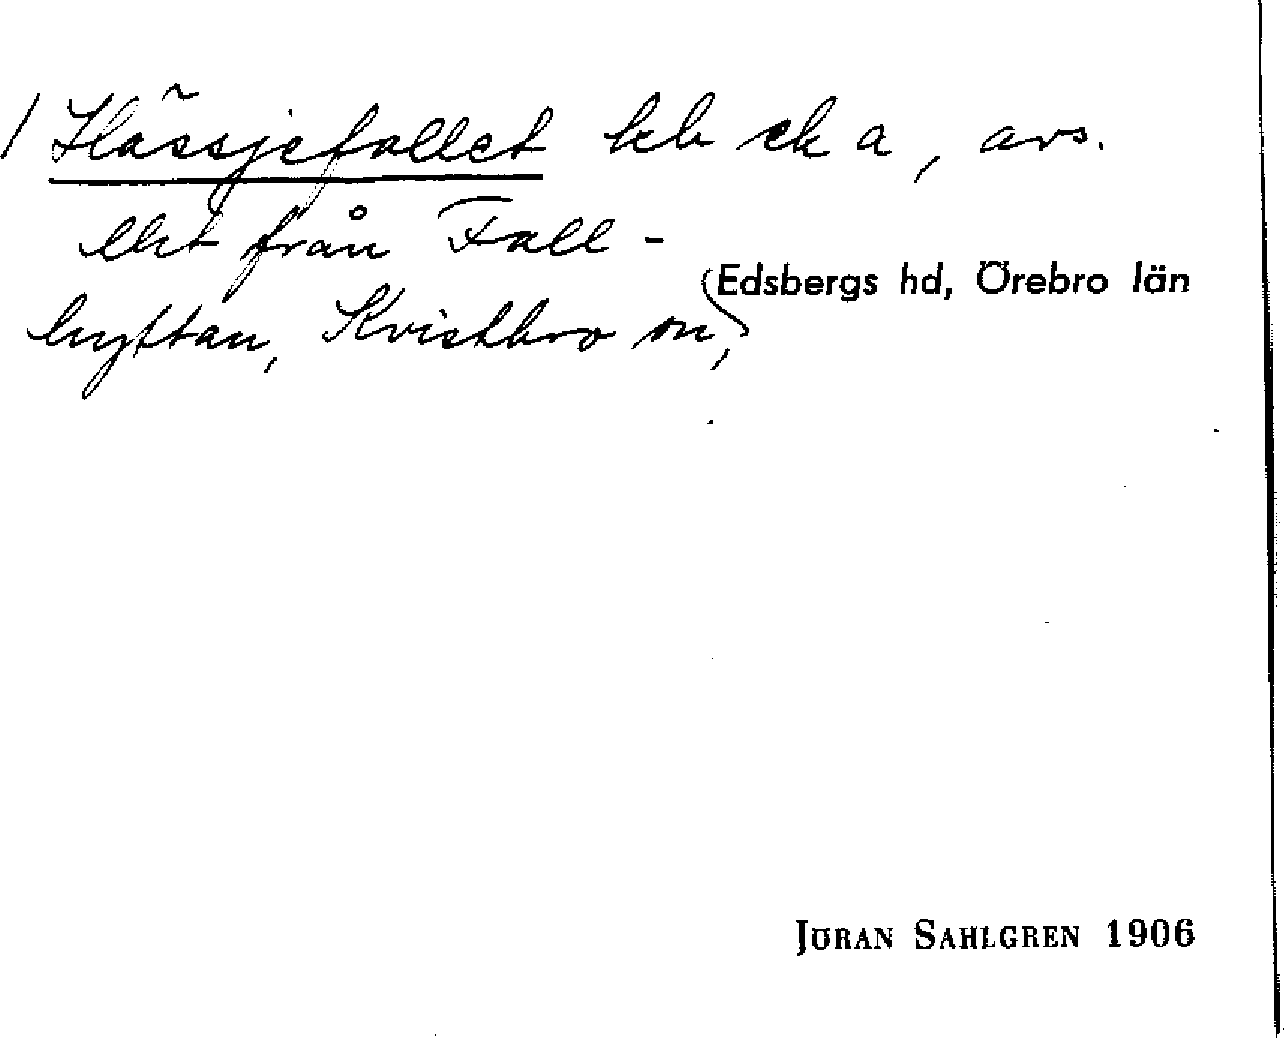 Hässjefallet kb sk a, avs.
från Fall-
hyttan, Kvistbro sn,
Edsbergs hd, Örebro län
JÖRAN SAHLGREN 1906